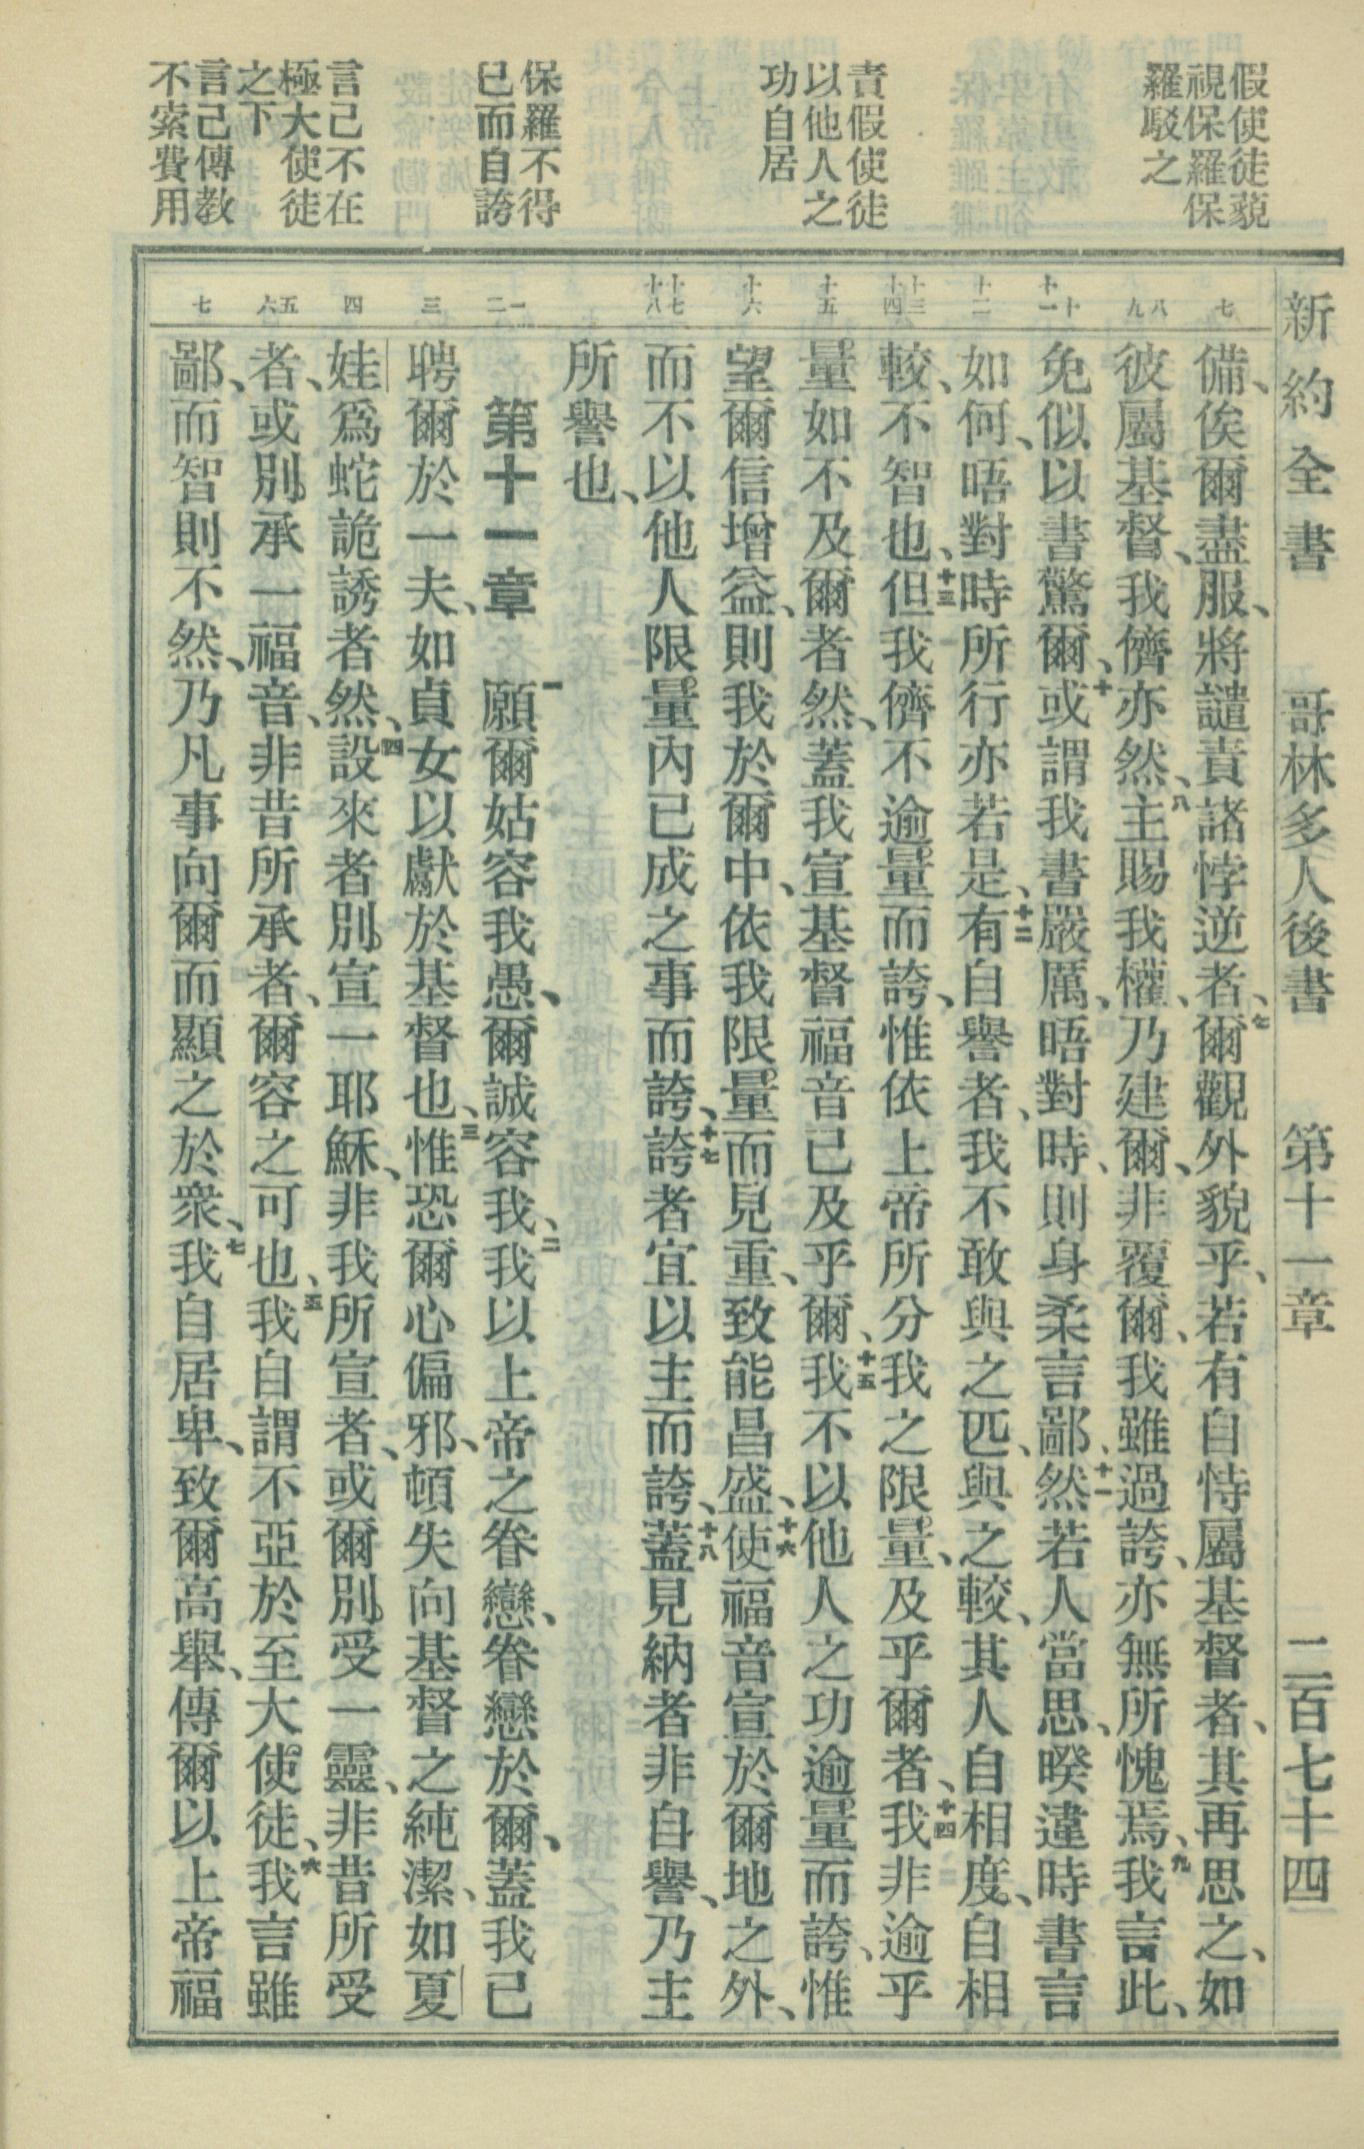 新約全書 哥林多人後書 第十一章 二百七十四
假使徒藐
視保羅保
羅駁之
責假使徒
以他人之
功自居
保羅不得
已而自誇
言己不在
極大使徒
之下
言己傳教
不索費用
七
八 九
十 十一
十二
十三 十四
十五
十六
十七 十八
一 二
三
四
五 六
七
備、俟爾盡服、將譴責諸悖逆者、七爾觀外貌乎、若有自恃屬基督者、其再思之、如
彼屬基督、我儕亦然、八主賜我權、乃建爾、非覆爾、我雖過誇、亦無所愧焉、九我言此、
免似以書驚爾、十或謂我書嚴厲、晤對時、則身柔言鄙、十一然若人當思、暌違時書言
如何、晤對時所行亦若是、十二有自譽者、我不敢與之匹、與之較、其人自相度、自相
較、不智也、十三但我儕不逾量而誇、惟依上帝所分我之限量、及乎爾者、十四我非逾乎
量如不及爾者然、蓋我宣基督福音已及乎爾、十五我不以他人之功逾量而誇、惟
望爾信增益、則我於爾中、依我限量而見重、致能昌盛、十六使福音宣於爾地之外、
而不以他人限量內已成之事而誇、十七誇者宜以主而誇、十八蓋見納者非自譽、乃主
所譽也、
第十一章 一願爾姑容我愚、爾誠容我、二我以上帝之眷戀、眷戀於爾、蓋我已
聘爾於一夫、如貞女以獻於基督也、三惟恐爾心偏邪、頓失向基督之純潔、如夏
娃爲蛇詭誘者然、四設來者別宣一耶穌、非我所宣者、或爾別受一靈、非昔所受
者、或別承一福音、非昔所承者、爾容之可也、五我自謂不亞於至大使徒、六我言雖
鄙、而智則不然、乃凡事向爾而顯之於衆、七我自居卑、致爾高舉、傳爾以上帝福